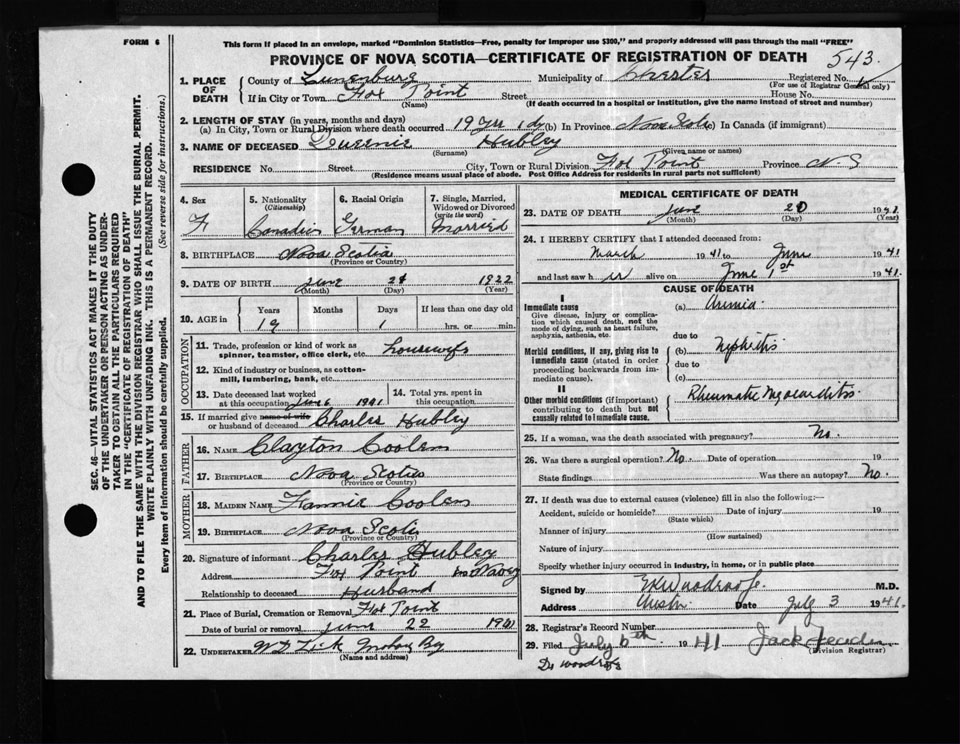 FORM 6
This form if placed in an envelope, marked "Dominion Statistics—Free, penalty for improper use $300," and properly addressed will pass through the mail "FREE"
PROVINCE OF NOVA SCOTIA—CERTIFICATE OF REGISTRATION OF DEATH 543
SEC. 46—VITAL STATISTICS ACT MAKES IT THE DUTY
OF THE UNDERTAKER OR PERSON ACTING AS UNDER-
TAKER TO OBTAIN ALL THE PARTICULARS REQUIRED
IN THE "CERTIFICATE OF REGISTRATION OF DEATH"
AND TO FILE THE SAME WITH THE DIVISION REGISTRAR WHO SHALL ISSUE THE BURIAL PERMIT.
WRITE PLAINLY WITH UNFADING INK. THIS IS A PERMANENT RECORD.
Every item of information should be carefully supplied. (See reverse side for instructions.)
1. PLACE OF DEATH
County of Lunenburg Municipality of Chester Registered No.
(For use of Registrar General only)
If in City or Town Fox Point Street House No.
(Name) (If death occurred in a hospital or institution, give the name instead of street and number)
2. LENGTH OF STAY (in years, months and days)
(a) In City, Town or Rural Division where death occurred 19 yrs 1 dy (b) In Province Nova Scotia (c) In Canada (if immigrant)
3. NAME OF DECEASED Hubley
(Surname) (Given name or names)
RESIDENCE No. Street City, Town or Rural Division Fox Point Province N S
(Residence means usual place of abode. Post Office Address for residents in rural parts not sufficient)
4. Sex F
5. Nationality (Citizenship) Canadian
6. Racial Origin German
7. Single, Married, Widowed or Divorced (write the word) Married
8. BIRTHPLACE Nova Scotia
(Province or Country)
9. DATE OF BIRTH June 1922
(Month) (Day) (Year)
10. AGE in Years Months Days If less than one day old
19 1 hrs. or min.
OCCUPATION
11. Trade, profession or kind of work as spinner, teamster, office clerk, etc. housewife
12. Kind of industry or business, as cotton-mill, lumbering, bank, etc.
13. Date deceased last worked at this occupation June 1941
14. Total yrs. spent in this occupation.
15. If married give name of wife or husband of deceased Charles Hubley
FATHER
16. NAME Clayton Coolen
17. BIRTHPLACE Nova Scotia
(Province or Country)
MOTHER
18. MAIDEN NAME Fannie Coolen
19. BIRTHPLACE Nova Scotia
(Province or Country)
20. Signature of informant Charles Hubley
Address Fox Point
Relationship to deceased Husband
21. Place of Burial, Cremation or Removal Fox Point
Date of burial or removal June 22 1941
22. UNDERTAKER
(Name and address)
MEDICAL CERTIFICATE OF DEATH
23. DATE OF DEATH June 19
(Month) (Day) (Year)
24. I HEREBY CERTIFY that I attended deceased from:
March 1941 to June 1941
and last saw her alive on June 1st 1941.
CAUSE OF DEATH
I
Immediate cause
Give disease, injury or complication which caused death, not the mode of dying, such as heart failure, asphyxia, asthenia, etc.
(a)
due to
Morbid conditions, if any, giving rise to immediate cause (stated in order proceeding backwards from immediate cause).
(b) Nephritis
due to
(c)
II
Other morbid conditions (if important) contributing to death but not causally related to immediate cause.
Rheumatic Myocarditis
25. If a woman, was the death associated with pregnancy? No.
26. Was there a surgical operation? No. Date of operation 19
State findings Was there an autopsy? No.
27. If death was due to external causes (violence) fill in also the following:—
Accident, suicide or homicide? Date of injury 19
(State which)
Manner of injury
(How sustained)
Nature of injury
Specify whether injury occurred in industry, in home, or in public place
Signed by M.D.
Address Chester Date July 3 1941.
28. Registrar's Record Number
29. Filed July 1941 Jack
(Division Registrar)